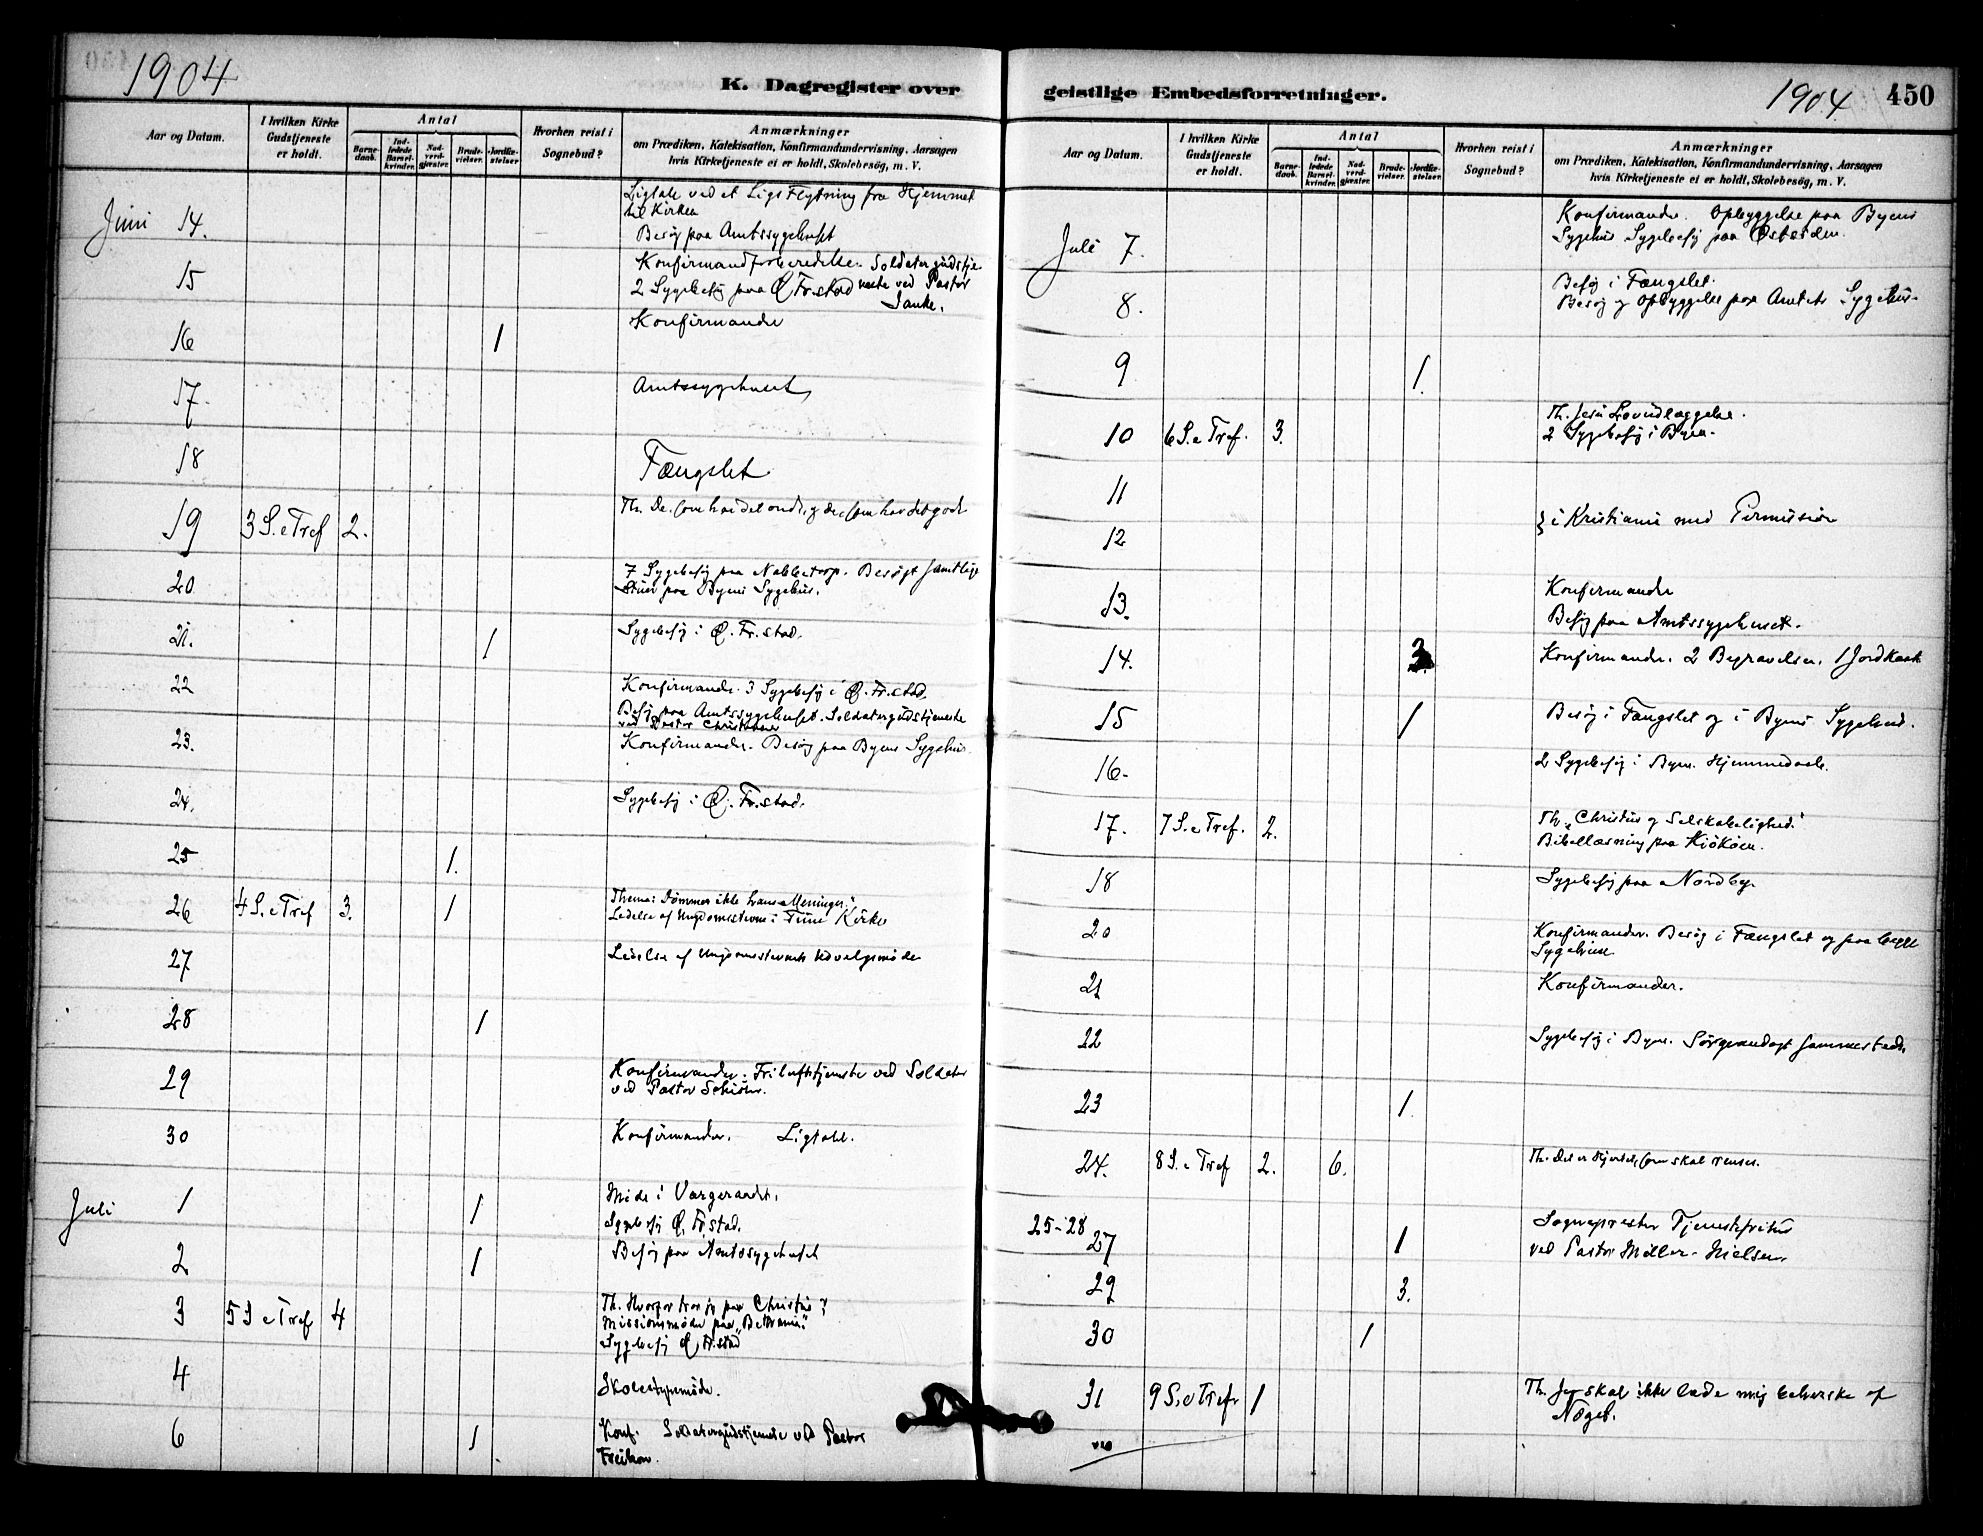 1904
K. Dagregister over
Aar og Datum.
I hvilken Kirke Gudstjeneste er holdt.
Antal
Barnedaab.
Indledede Barselkvinder.
Nadverdgjæster.
Brudevielser.
Jordkastelser.
Hvorhen reist i Sognebud?
Anmærkninger
om Prædiken, Katekisation, Konfirmandundervisning, Aarsagen
hvis Kirketjeneste ei er holdt, Skolebesøg, m. V.
Ligtale ved et Ligs Flytning fra Hjemmet
Juni 14. til Kirken
Besøg paa Amtssygehuset
15 Konfirmandforberedelse. Soldatergudstje-
2 Sygebesøg paa Ø. Fr.stad neste ved Pastor
16 1 Konfirmander
17. Amtssygehuset
18 Fængslet
19 3 S. e Tref 2. Th. De, som har det ondt, og de, som har det godt
20 7 Sygebesøg paa Nabbetorp. Besøgt samtlige
Stuer paa Byens Sygehus.
21. 1 Sygebesøg i Ø. Fr.stad.
22 Konfirmander. 3 Sygebesøg i Ø. Fr.stad.
Besøg paa Amtssygehuset. Soldatergudstjeneste
ved Pastor
23. Konfirmander. Besøg paa Byens Sygehus.
24. Sygebesøg i Ø. Fr.stad.
25 1.
26 4 S. e Tref 3. 1 Thema: Dømmer ikke hverandre
Ledelse af Ungdomsstevne i Tune Kirke
27 Ledelse af Ungdomsstevnets Udvalgsmøde
28 1
29 Konfirmander. Friluftstjeneste ved Soldater
ved Pastor
30 Konfirmander. Ligtale.
Juli 1 1 Møde i Vergeraadet.
Sygebesøg Ø. Fr.stad.
2 1 Besøg paa Amtssygehuset
3 5 S e Tref 4 Th. Hvorfor tror jeg paa Christus?
Missionsmøde paa "Bethania".
Sygebesøg Ø. Fr.stad
4 Skolestyremøde.
6 1 Konf. Soldatergudstjeneste ved Pastor
geistlige Embedsforretninger.
1904. 450
Aar og Datum.
I hvilken Kirke Gudstjeneste er holdt.
Antal
Barnedaab.
Indledede Barselkvinder.
Nadverdgjæster.
Brudevielser.
Jordkastelser.
Hvorhen reist i Sognebud?
Anmærkninger
om Prædiken, Katekisation, Konfirmandundervisning, Aarsagen
hvis Kirketjeneste ei er holdt, Skolebesøg, m. V.
Konfirmander. Opbyggelse paa Byens
Juli 7. Sygehus Sygebesøg paa
Besøg i Fængslet.
8. Besøg og Opbyggelse paa Amtets Sygehus.
9 1.
10 6 S. e Tref. 3. Th. Jesu Lovudlæggelse.
2 Sygebesøg i Byen.
11
12 } i Kristiania med Permission
13. Konfirmander
Besøg paa Amtssygehuset.
14. 3 Konfirmander. 2 Begravelser, 1 Jordkast
15 1 Besøg i Fængslet og i Byens Sygehus.
16. 2 Sygebesøg i Byen. Hjemmedaab.
17. 7 S. e Tref. 2. Th. "Christus og Selskabelighed."
Bibellæsning paa Kjøkøen.
18 Sygebesøg paa Nordby.
20 Konfirmander. Besøg i Fængslet og paa begge
Sygehuse.
21 Konfirmander.
22 Sygebesøg i Byen. Sørgeandagt sammesteds.
23 1.
24. 8 S. e Tref 2. 6. Th. Det er Hjertet, som skal renses.
25-28 Sognepresten Tjenestefrihed
27 1 ved Pastor Møller-Nielsen
29 3.
30 1
31 9 S. e Tref 1 Th. Jeg skal ikke lade mig beherske af
Noget.